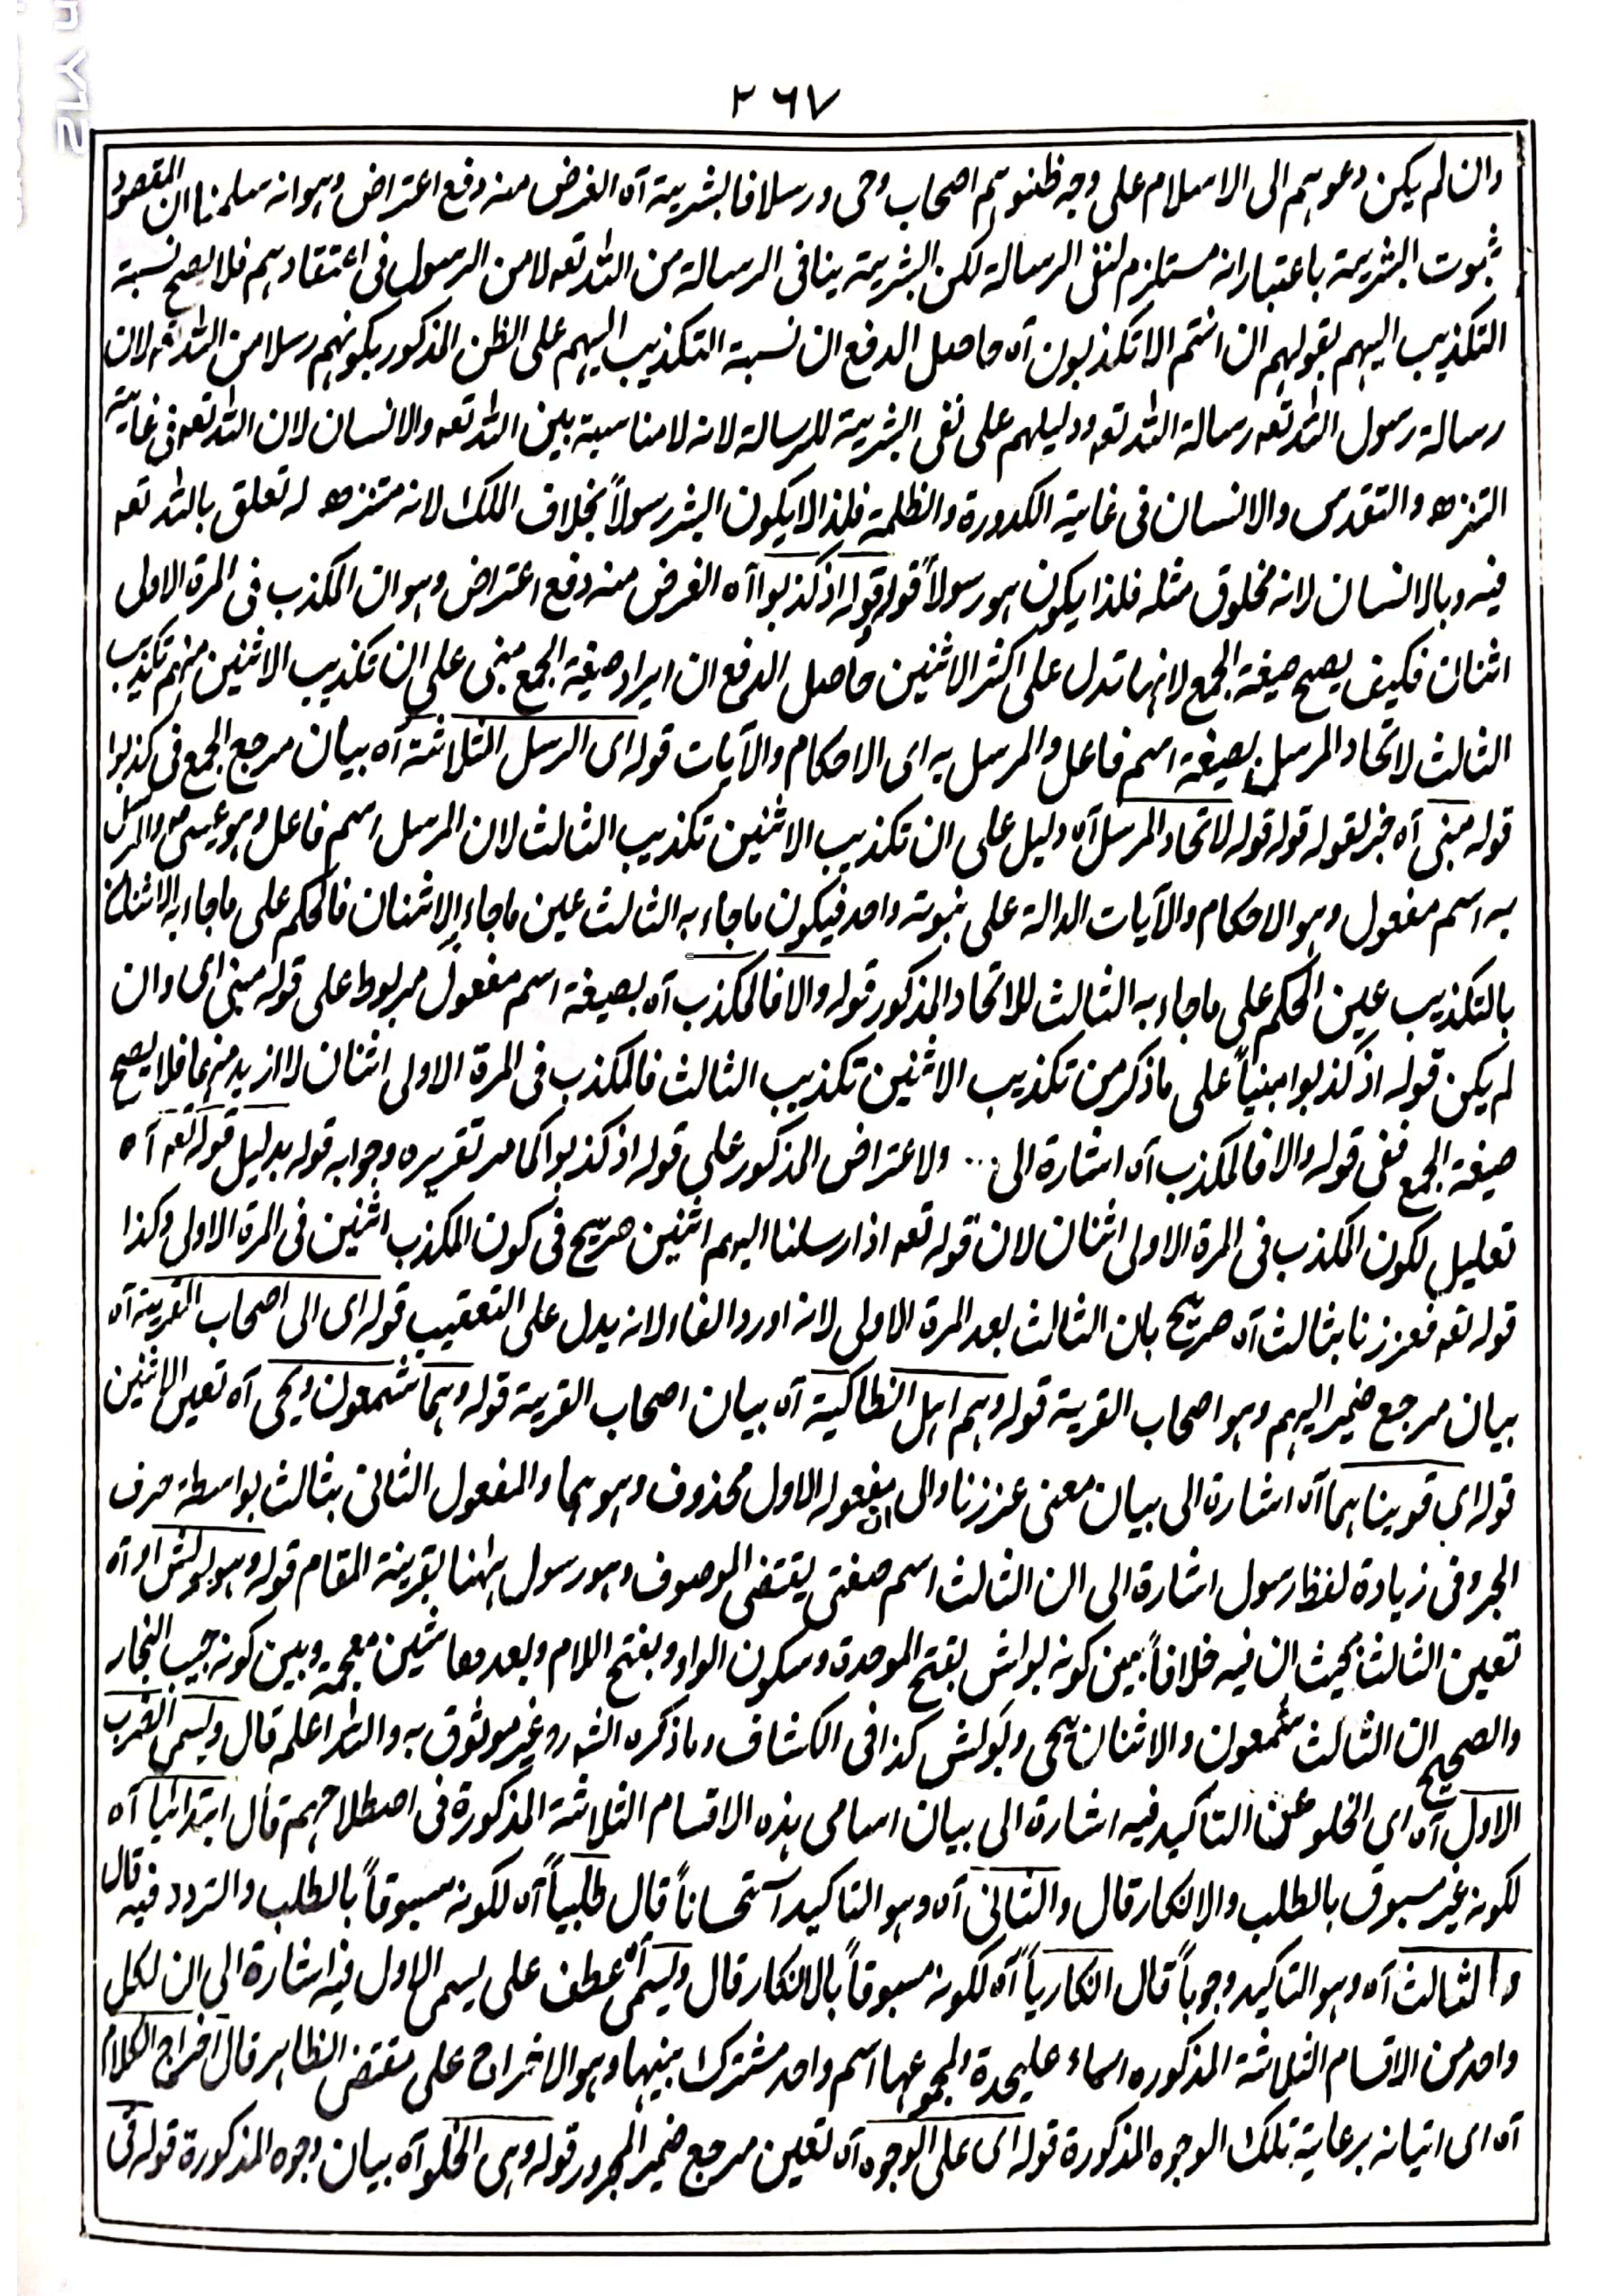 ۲۶۷
وان لم يكن دعوهم الى الاسلام على وجه ظنوهم اصحاب وحى ورسلا فالبشرية آه الغرض منه دفع اعتراض وهو انه سلمنا ان المقصود
ثبوت البشرية باعتبار انه مستلزم لنفى الرسالة لكن البشرية ينافى الرسالة من الله تعه لا من الرسول فى اعتقادهم فلا يصح نسبة
التكذيب اليهم بقولهم ان انتم الا تكذبون آه حاصل الدفع ان نسبة التكذيب اليهم على الظن المذكور بكونهم رسلا من الله تعه لان
رسالة رسول الله تعه رسالة الله تعه ودليلهم على نفى البشرية للرسالة لانه لا مناسبة بين الله تعه والانسان لان الله تعه فى غاية
التنزه والتقدس والانسان فى غاية الكدورة والظلمة فلذا لا يكون البشر رسولاً بخلاف الملك لانه متنزه له تعلق بالله تعه
فيه وبالانسان لانه مخلوق مثله فلذا يكون هو رسولاً قوله قوله اذ كذبوا آه الغرض منه دفع اعتراض وهو ان المكذب فى المرة الاولى
اثنان فكيف يصح صيغة الجمع لانها تدل على اكثر الاثنين حاصل الدفع ان ايراد صيغة الجمع مبنى على ان تكذيب الاثنين منهم تكذيب
الثالث لاتحاد المرسل بصيغة اسم فاعل والمرسل به اى الاحكام والآيات قوله اى الرسل الثلاثة آه بيان مرجع الجمع فى كذبوا
قوله مبنى آه خبر لقوله قوله قوله لاتحاد المرسل آه دليل على ان تكذيب الاثنين تكذيب الثالث لان المرسل اسم فاعل وهو عيسى والمرسل
به اسم مفعول وهو الاحكام والآيات الدالة على نبوته واحد فيكون ما جاء به الثالث عين ما جاء به الاثنان فالحكم على ما جاء به الاثنان
بالتكذيب عين الحكم على ما جاء به الثالث للاتحاد المذكور قوله والا فالمكذب آه بصيغة اسم مفعول مربوط على قوله مبنى اى وان
لم يكن قوله اذ كذبوا مبنياً على ما ذكر من تكذيب الاثنين تكذيب الثالث فالمكذب فى المرة الاولى اثنان لا ازيد منهما فلا يصح
صيغة الجمع ففى قوله والا فالمكذب آه اشارة الى ... ولاعتراض المذكور على قوله اذ كذبوا كما مر تقريره وجوابه قوله بدليل قوله تعه آه
تعليل لكون المكذب فى المرة الاولى اثنان لان قوله تعه اذ ارسلنا اليهم اثنين صريح فى كون المكذب اثنين فى المرة الاولى وكذا
قوله تعه فعززنا بثالث آه صريح بان الثالث بعد المرة الاولى لانه اورد الفاء لانه يدل على التعقيب قوله اى الى اصحاب القرية آه
بيان مرجع ضمير اليهم وهو اصحاب القرية قوله وهم اهل انطاكية آه بيان اصحاب القرية قوله وهما شمعون ويحى آه تعين الاثنين
قوله اى قويناهما آه اشارة الى بيان معنى عززنا والى ان مفعوله الاول محذوف وهو هما والمفعول الثانى بثالث بواسطة حرف
الجر وفى زيادة لفظ رسول اشارة الى ان الثالث اسم صفتى يقتضى الموصوف وهو رسول ههنا بقرينة المقام قوله وهو بولش او آه
تعين الثالث بحيث ان فيه خلافاً بين كونه بولش بفتح الموحدة وسكون الواو وبفتح اللام وبعدها شين معجمة وبين كونه حبيب النجار
والصحيح ان الثالث شمعون والاثنان يحى وبولش كذا فى الكشاف وما ذكره الشه رو غير موثوق به والله اعلم قال ويسمى الضرب
الاول آه اى الخلو عن التاكيد فيه اشارة الى بيان اسامى هذه الاقسام الثلاثة المذكورة فى اصطلاحهم قال ابتدائيا آه
لكونه غير مسبوق بالطلب والانكار قال والثانى آه وهو التاكيد استحساناً قال طلبياً آه لكونه مسبوقاً بالطلب والتردد فيه قال
والثالث آه وهو التاكيد وجوباً قال انكارياً آه لكونه مسبوقاً بالانكار قال ويسمى آه عطف على يسمى الاول فيه اشارة الى ان لكل
واحد من الاقسام الثلاثة المذكوره اسماء عليحدة لمجموعها اسم واحد مشترك بينها وهو الاخراج على مقتضى الظاهر قال اخراج الكلام
آه اى اتيانه برعاية تلك الوجوه المذكورة قوله اى على الوجوه آه تعين مرجع ضمير المجرور قوله وهى الخلو آه بيان وجوه المذكورة قوله فى